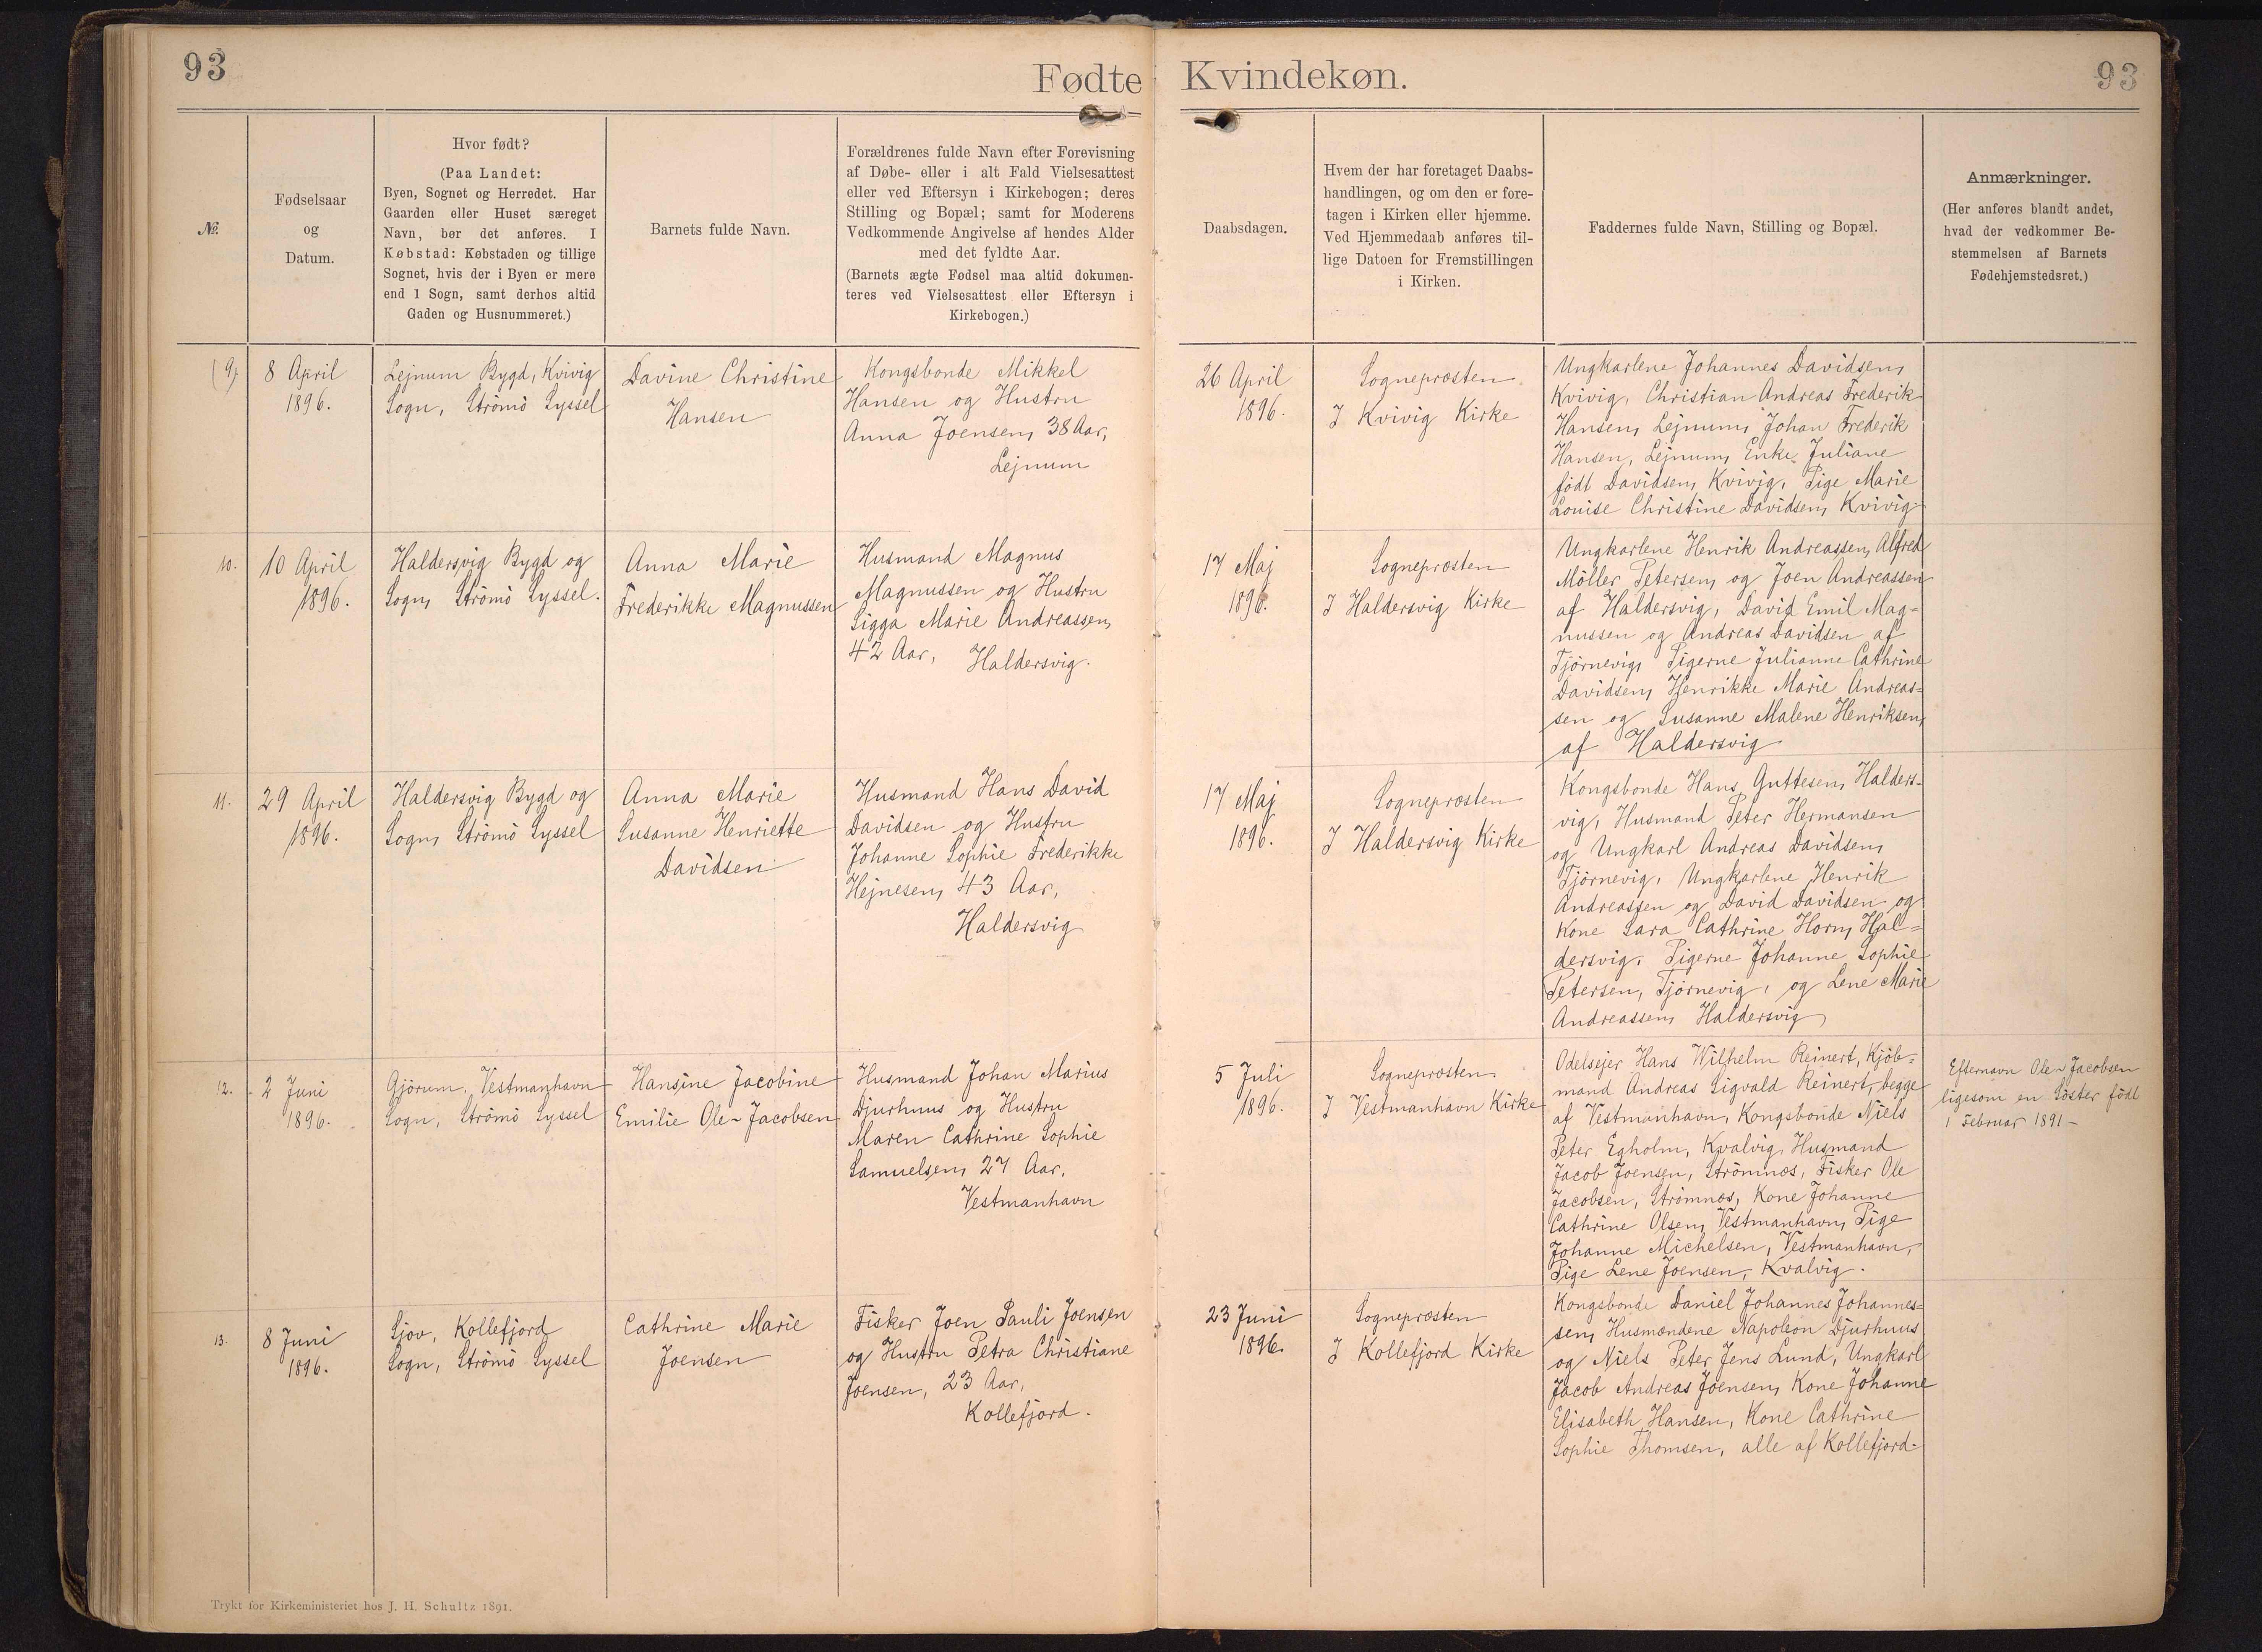 93
Fødte Kvindekøn.
93
№.
Fødselsaar
og
Datum.
Hvor født?
(Paa Landet:
Byen, Sognet og Herredet. Har
Gaarden eller Huset særeget
Navn, bør det anføres. I
Købstad: Købstaden og tillige
Sognet, hvis der i Byen er mere
end 1 Sogn, samt derhos altid
Gaden og Husnummeret.)
Barnets fulde Navn.
Forældrenes fulde Navn efter Forevisning
af Døbe- eller i alt Fald Vielsesattest
eller ved Eftersyn i Kirkebogen; deres
Stilling og Bopæl; samt for Moderens
Vedkommende Angivelse af hendes Alder
med det fyldte Aar.
(Barnets ægte Fødsel maa altid dokumen-
teres ved Vielsesattest eller Eftersyn i
Kirkebogen.)
Daabsdagen.
Hvem der har foretaget Daabs-
handlingen, og om den er fore-
tagen i Kirken eller hjemme.
Ved Hjemmedaab anføres til-
lige Datoen for Fremstillingen
i Kirken.
Faddernes fulde Navn, Stilling og Bopæl.
Anmærkninger.
(Her anføres blandt andet,
hvad der vedkommer Be-
stemmelsen af Barnets
Fødehjemstedsret.)
(9)
8 April
1896.
Lejnum Bygd, Kvivig
Sogn, Strömö Syssel
Davine Christine
Hansen
Kongsbonde Mikkel
Hansen og Hustru
Anna Joensen, 38 Aar,
Lejnum
26 April
1896.
Sognepræsten
I Kvivig Kirke
Ungkarlene Johannes Davidsen,
Kvivig, Christian Andreas Frederik
Hansen, Lejnum, Johan Frederik
Hansen, Lejnum, Enke Juliane
født Davidsen, Kvivig, Pige Marie
Louise Christine Davidsen, Kvivig
10.
10 April
1896.
Haldersvig Bygd og
Sogn, Strömö Syssel.
Anna Marie
Frederikke Magnussen
Husmand Magnus
Magnussen og Hustru
Sigga Marie Andreassen,
42 Aar, Haldersvig.
17 Maj
1896.
Sognepræsten
I Haldersvig Kirke
Ungkarlene Henrik Andreassen, Alfred
Möller Petersen, og Joen Andreassen
af Haldersvig, David Emil Mag=
nussen og Andreas Davidsen af
Tjörnevig, Pigerne Julianne Cathrine
Davidsen, Henrikke Marie Andreas=
sen og Susanne Malene Henriksen,
af Haldersvig
11.
29 April
1896.
Haldersvig Bygd og
Sogn, Strömö Syssel
Anna Marie
Susanne Henriette
Davidsen
Husmand Hans David
Davidsen og Hustru
Johanne Sophie Frederikke
Hejnesen, 43 Aar,
Haldersvig
17 Maj
1896.
Sognepræsten
I Haldersvig Kirke
Kongsbonde Hans Guttesen, Halders-
vig, Husmand Peter Hermansen
og Ungkarl Andreas Davidsen,
Tjörnevig, Ungkarlene Henrik
Andreassen og David Davidsen og
Kone Sara Cathrine Horn, Hal=
dersvig, Pigerne Johanne Sophie
Petersen, Tjörnevig, og Lene Marie
Andreassen, Haldersvig
12.
2 Juni
1896.
Gjörum, Vestmanhavn
Sogn, Strömö Syssel
Hansine Jacobine
Emilie Ole-Jacobsen
Husmand Johan Marius
Djurhuus og Hustru
Maren Cathrine Sophie
Samuelsen, 27 Aar,
Vestmanhavn
5 Juli
1896.
Sognepræsten
I Vestmanhavn Kirke
Odelsejer Hans Wilhelm Reinert, Kjöb=
mand Andreas Sigvald Reinert, begge
af Vestmanhavn, Kongsbonde Niels
Peter Egholm, Kvalvig, Husmand
Jacob Joensen, Strömnæs, Fisker Ole
Jacobsen, Strömnæs, Kone Johanne
Cathrine Olsen, Vestmanhavn, Pige
Johanne Michelsen, Vestmanhavn,
Pige Lene Joensen, Kvalvig.
Efternavn Ole-Jacobsen
ligesom en Söster födt
1 Februar 1891 -
13.
8 Juni
1896.
Sjov, Kollefjord
Sogn, Strömö Syssel
Cathrine Marie
Joensen
Fisker Joen Pauli Joensen
og Hustru Petra Christiane
Joensen, 23 Aar,
Kollefjord.
23 Juni
1896.
Sognepræsten
I Kollefjord Kirke
Kongsbonde Daniel Johannes Johannes=
sen, Husmændene Napoleon Djurhuus
og Niels Peter Jens Lund, Ungkarl
Jacob Andreas Joensen, Kone Johanne
Elisabeth Hansen, Kone Cathrine
Sophie Thomsen, alle af Kollefjord.
Trykt for Kirkeministeriet hos J. H. Schultz 1891.